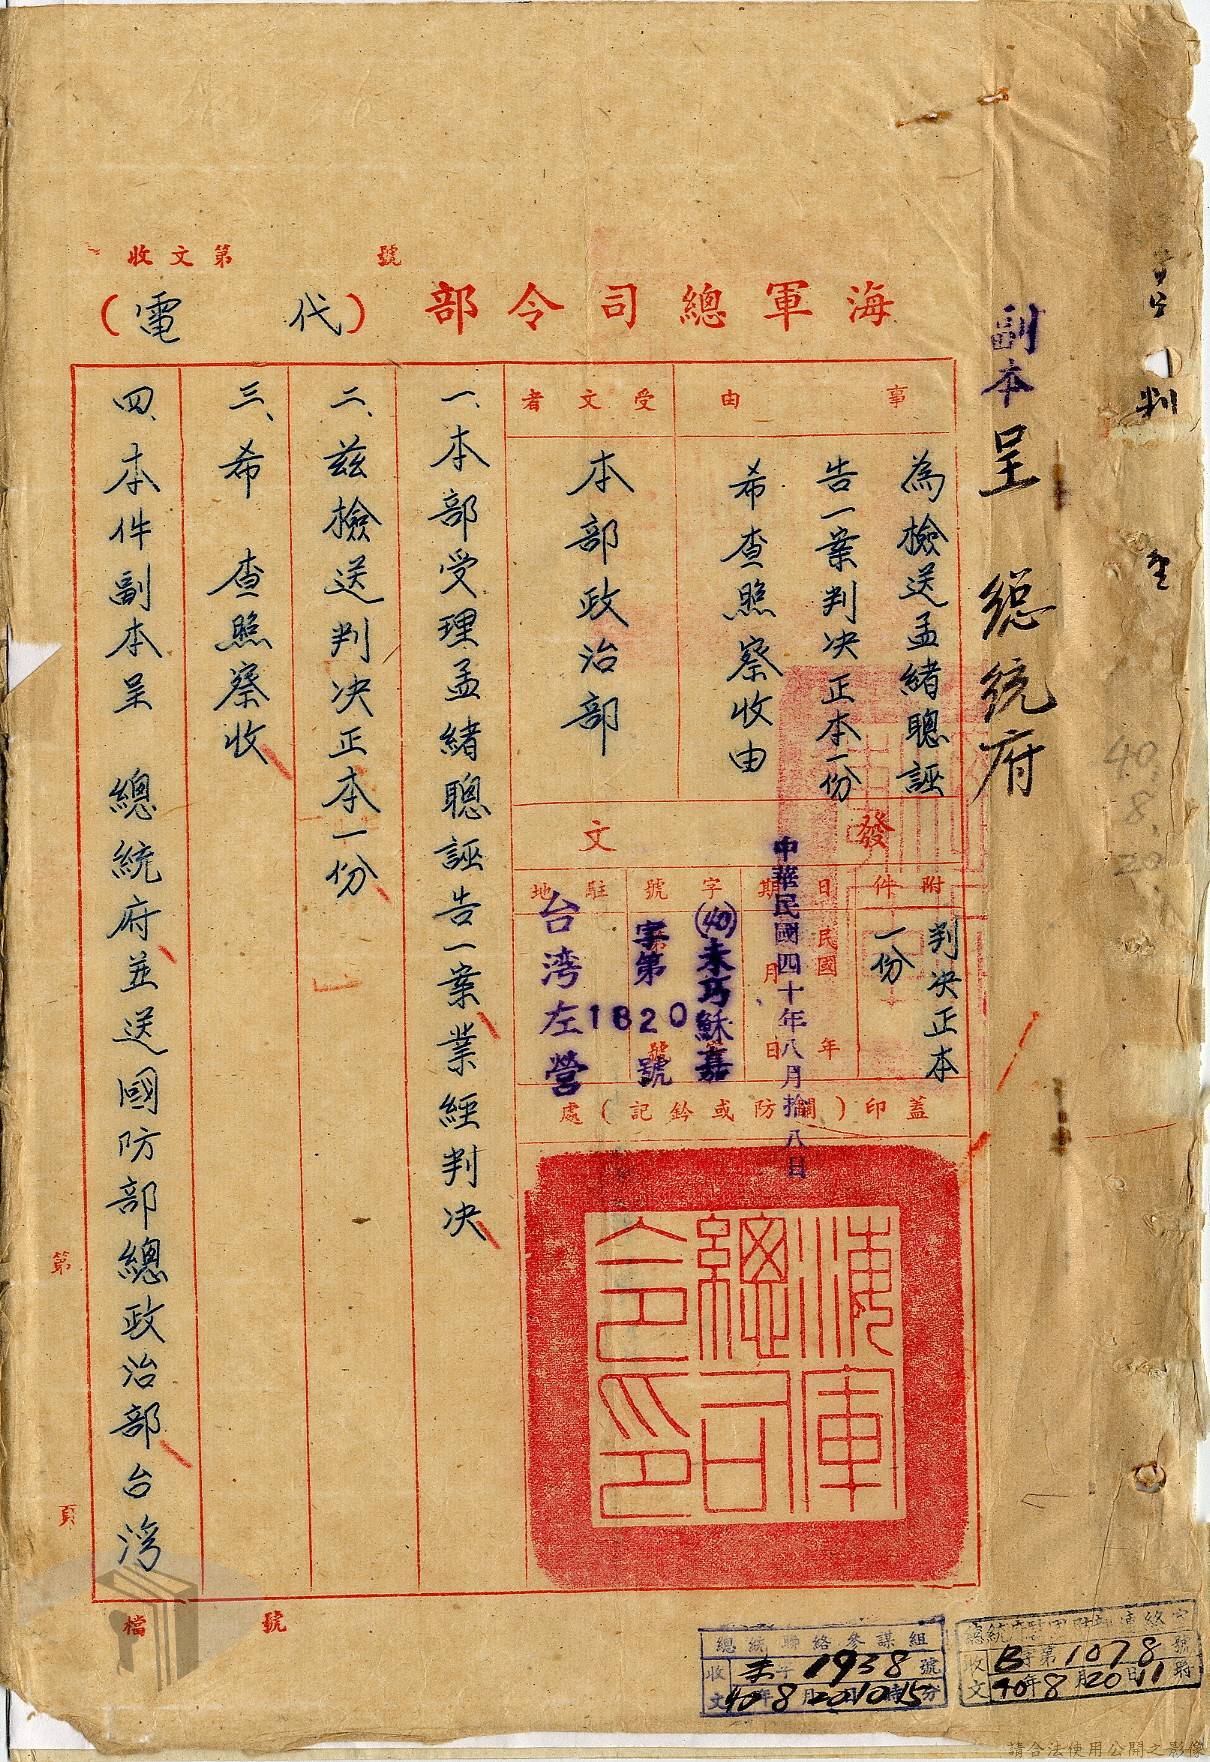 副本呈 總統府
收文第 號
海軍總司令部(代電)
事由
為檢送孟緒聰誣
告一案判決正本一份
希查照察收由
受文者
本部政治部
發文
附件
判決正本
一份
日期
民國 年 月 日
中華民國四十年八月拾八日
字號
(40)未巧穌嘉
字第1820號
駐地
台灣左營
蓋印(關防或鈐記)處
海軍總司令印
一、本部受理孟緒聰誣告一案業經判決
二、茲檢送判決正本一份
三、希 查照察收
四、本件副本呈 總統府並送國防部總政治部台灣
第 頁
檔 號
總統聯絡參謀組
收文 字1938號
40年8月20日10時15分
收文 B字第1078號
40年8月20日11時
判
40.8.20.
請合法使用公開之影像